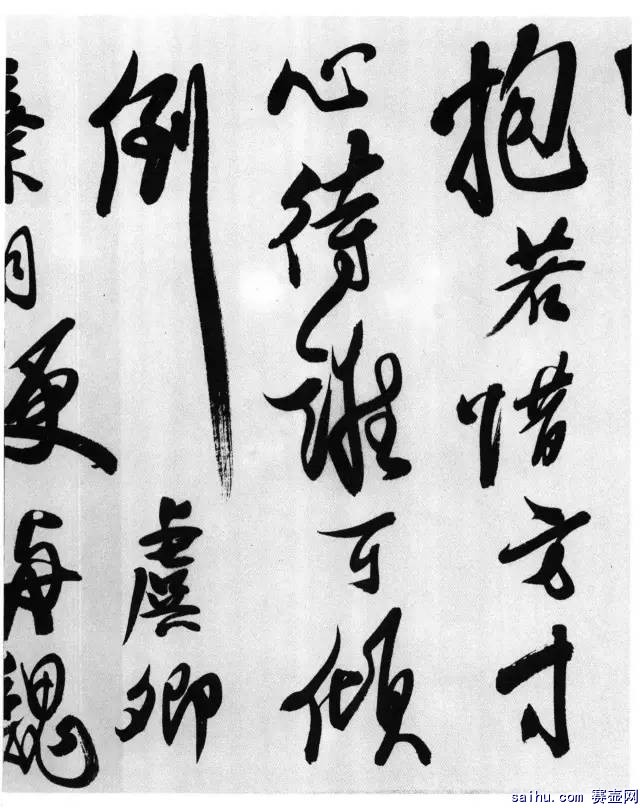 抱若惜方寸
心待誰可傾
倒
虞卿
便與魏
saihu.com 赛壶网